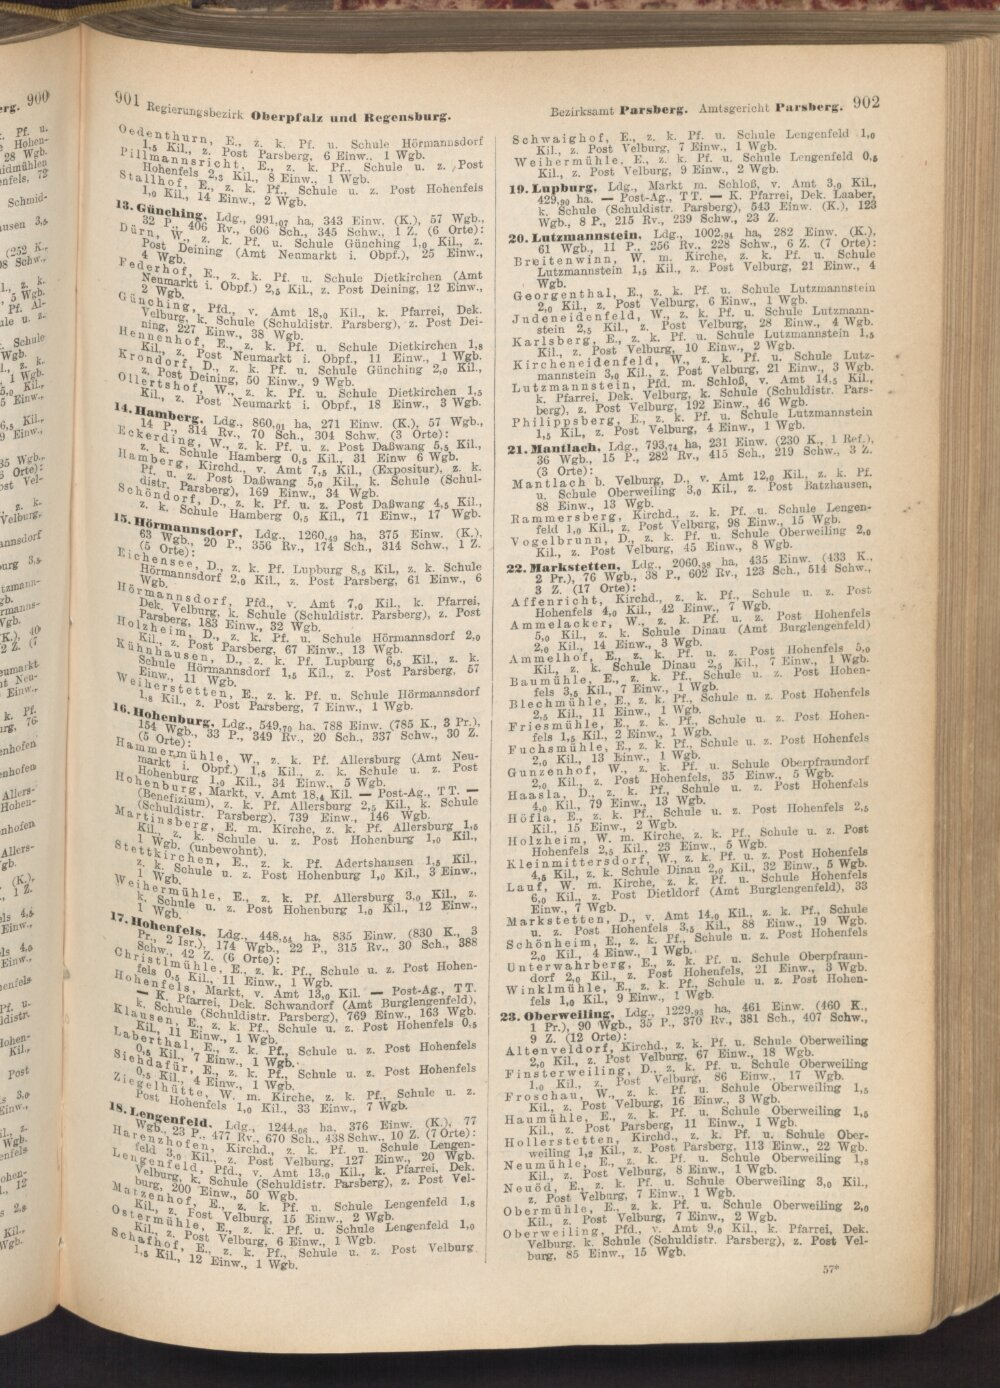 901 Regierungsbezirk Oberpfalz und Regensburg.
Oedenthurn, E., z. k. Pf. u. Schule Hörmannsdorf
1,5 Kil., z. Post Parsberg, 6 Einw., 1 Wgb.
Pillmannsricht, E., z. k. Pf., Schule u. z. Post
Hohenfels 2,3 Kil., 8 Einw., 1 Wgb.
Stallhof, E., z. k. Pf., Schule u. z. Post Hohenfels
1,0 Kil., 14 Einw., 2 Wgb.
13. Günching, Ldg., 991,07 ha, 343 Einw. (K.), 57 Wgb.,
32 P., 406 Rv., 606 Sch., 345 Schw., 1 Z. (6 Orte):
Dürn, W., z. k. Pf. u. Schule Günching 1,0 Kil., z.
Post Deining (Amt Neumarkt i. Obpf.), 25 Einw.,
4 Wgb.
Federhof, E., z. k. Pf. u. Schule Dietkirchen (Amt
Neumarkt i. Obpf.) 2,5 Kil., z. Post Deining, 12 Einw.,
2 Wgb.
Günching, Pfd., v. Amt 18,0 Kil., k. Pfarrei, Dek.
Velburg, k. Schule (Schuldistr. Parsberg), z. Post Dei-
ning, 227 Einw., 38 Wgb.
Hennenhof, E., z. k. Pf. u. Schule Dietkirchen 1,8
Kil., z. Post Neumarkt i. Obpf., 11 Einw., 1 Wgb.
Krondorf, D., z. k. Pf. u. Schule Günching 2,0 Kil.,
z. Post Deining, 50 Einw., 9 Wgb.
Ollertshof, W., z. k. Pf. u. Schule Dietkirchen 1,5
Kil., z. Post Neumarkt i. Obpf., 18 Einw., 3 Wgb.
14. Hamberg, Ldg., 860,01 ha, 271 Einw. (K.), 57 Wgb.,
14 P., 314 Rv., 70 Sch., 304 Schw. (3 Orte):
Eckerding, W., z. k. Pf. u. z. Post Daßwang 5,5 Kil.,
z. k. Schule Hamberg 0,5 Kil., 31 Einw 6 Wgb.
Hamberg, Kirchd., v. Amt 7,5 Kil., (Expositur), z. k.
Pf. u. z. Post Daßwang 5,0 Kil., k. Schule (Schul-
distr. Parsberg), 169 Einw., 34 Wgb.
Schöndorf, D., z. k. Pf. u. z. Post Daßwang 4,5 Kil.,
z. k. Schule Hamberg 0,5 Kil., 71 Einw., 17 Wgb.
15. Hörmannsdorf, Ldg., 1260,49 ha, 375 Einw. (K.),
63 Wgb., 20 P., 356 Rv., 174 Sch., 314 Schw., 1 Z.
(5 Orte):
Eichensee, D., z. k. Pf. Lupburg 8,5 Kil., z. k. Schule
Hörmannsdorf 2,0 Kil., z. Post Parsberg, 61 Einw., 6
Wgb.
Hörmannsdorf, Pfd., v. Amt 7,0 Kil., k. Pfarrei,
Dek. Velburg, k. Schule (Schuldistr. Parsberg), z. Post
Parsberg, 183 Einw., 32 Wgb.
Holzheim, D., z. k. Pf. u. Schule Hörmannsdorf 2,0
Kil., z. Post Parsberg, 67 Einw., 13 Wgb.
Kühnhausen, D., z. k. Pf. Lupburg 6,5 Kil., z. k.
Schule Hörmannsdorf 1,5 Kil., z. Post Parsberg, 57
Einw., 11 Wgb.
Weiherstetten, E., z. k. Pf. u. Schule Hörmannsdorf
1,8 Kil., z. Post Parsberg, 7 Einw., 1 Wgb.
16. Hohenburg, Ldg., 549,70 ha, 788 Einw. (785 K., 3 Pr.),
154 Wgb., 33 P., 349 Rv., 20 Sch., 337 Schw., 30 Z.
(5 Orte):
Hammermühle, W., z. k. Pf. Allersburg (Amt Neu-
markt i. Obpf.) 1,5 Kil., z. k. Schule u. z. Post
Hohenburg 1,0 Kil., 34 Einw., 5 Wgb.
Hohenburg, Markt, v. Amt 18,4 Kil. — Post-Ag., TT. —
(Benefizium), z. k. Pf. Allersburg 2,5 Kil., k. Schule
(Schuldistr. Parsberg), 739 Einw., 146 Wgb.
Martinsberg, E. m. Kirche, z. k. Pf. Allersburg 1,5
Kil., z. k. Schule u. z. Post Hohenburg 1,0 Kil.,
1 Wgb. (unbewohnt).
Stettkirchen, E., z. k. Pf. Adertshausen 1,5 Kil.,
z. k. Schule u. z. Post Hohenburg 1,0 Kil., 3 Einw.,
1 Wgb.
Weihermühle, E., z. k. Pf. Allersburg 3,0 Kil., z.
k. Schule u. z. Post Hohenburg 1,0 Kil., 12 Einw.,
1 Wgb.
17. Hohenfels, Ldg., 448,54 ha, 835 Einw. (830 K., 3
Pr., 2 Isr.), 174 Wgb., 22 P., 315 Rv., 30 Sch., 388
Schw., 42 Z. (6 Orte):
Christlmühle, E., z. k. Pf., Schule u. z. Post Hohen-
fels 0,5 Kil., 11 Einw., 1 Wgb.
Hohenfels, Markt, v. Amt 13,0 Kil. — Post-Ag., TT.
— K. Pfarrei, Dek. Schwandorf (Amt Burglengenfeld),
k. Schule (Schuldistr. Parsberg), 769 Einw., 163 Wgb.
Klausen, E., z. k. Pf., Schule u. z. Post Hohenfels 0,5
Kil., 11 Einw., 1 Wgb.
Laberthal, E., z. k. Pf., Schule u. z. Post Hohenfels
0,5 Kil., 7 Einw., 1 Wgb.
Siehdafür, E., z. k. Pf., Schule u. z. Post Hohenfels
0,5 Kil., 4 Einw., 1 Wgb.
Ziegelhütte, W. m. Kirche, z. k. Pf., Schule u. z.
Post Hohenfels 1,0 Kil., 33 Einw., 7 Wgb.
18. Lengenfeld, Ldg., 1244,06 ha, 376 Einw. (K.), 77
Wgb., 23 P., 477 Rv., 670 Sch., 438 Schw., 10 Z. (7 Orte):
Harenzhofen, Kirchd., z. k. Pf. u. Schule Lengen-
feld 3,0 Kil., z. Post Velburg, 127 Einw., 20 Wgb.
Lengenfeld, Pfd., v. Amt 13,0 Kil., k. Pfarrei, Dek.
Velburg, k. Schule (Schuldistr. Parsberg), z. Post Vel-
burg, 200 Einw., 50 Wgb.
Matzenhof, E., z. k. Pf. u. Schule Lengenfeld 1,8
Kil., z. Post Velburg, 15 Einw., 2 Wgb.
Ostermühle, E., z. k. Pf. u. Schule Lengenfeld 1,0
Kil., z. Post Velburg, 6 Einw., 1 Wgb.
Schafhof, E., z. k. Pf., Schule u. z. Post Velburg
1,5 Kil., 12 Einw., 1 Wgb.
Bezirksamt Parsberg. Amtsgericht Parsberg. 902
Schwaighof, E., z. k. Pf. u. Schule Lengenfeld 1,0
Kil., z. Post Velburg, 7 Einw., 1 Wgb.
Weihermühle, E., z. k. Pf. u. Schule Lengenfeld 0,5
Kil., z. Post Velburg, 9 Einw., 2 Wgb.
19. Lupburg, Ldg., Markt m. Schloß, v. Amt 3,0 Kil.,
429,90 ha. — Post-Ag., TT. — K. Pfarrei, Dek. Laaber,
k. Schule (Schuldistr. Parsberg), 543 Einw. (K.), 123
Wgb., 8 P., 215 Rv., 239 Schw., 23 Z.
20. Lutzmannstein, Ldg., 1002,94 ha, 282 Einw. (K.),
61 Wgb., 11 P., 256 Rv., 228 Schw., 6 Z. (7 Orte):
Breitenwinn, W. m. Kirche, z. k. Pf. u. Schule
Lutzmannstein 1,5 Kil., z. Post Velburg, 21 Einw., 4
Wgb.
Georgenthal, E., z. k. Pf. u. Schule Lutzmannstein
2,0 Kil., z. Post Velburg, 6 Einw., 1 Wgb.
Judeneidenfeld, W., z. k. Pf. u. Schule Lutzmann-
stein 2,5 Kil., z. Post Velburg, 28 Einw., 4 Wgb.
Karlsberg, E., z. k. Pf. u. Schule Lutzmannstein 1,5
Kil., z. Post Velburg, 10 Einw., 2 Wgb.
Kircheneidenfeld, W., z. k. Pf. u. Schule Lutz-
mannstein 3,0 Kil., z. Post Velburg, 21 Einw., 3 Wgb.
Lutzmannstein, Pfd. m. Schloß, v. Amt 14,5 Kil.,
k. Pfarrei, Dek. Velburg, k. Schule (Schuldistr. Pars-
berg), z. Post Velburg, 192 Einw., 46 Wgb.
Philippsberg, E., z. k. Pf. u. Schule Lutzmannstein
1,5 Kil., z. Post Velburg, 4 Einw., 1 Wgb.
21. Mantlach, Ldg., 793,74 ha, 231 Einw. (230 K., 1 Ref.),
36 Wgb., 15 P., 282 Rv., 415 Sch., 219 Schw., 3 Z.
(3 Orte):
Mantlach b. Velburg, D., v. Amt 12,0 Kil., z. k. Pf.
u. Schule Oberweiling 3,0 Kil., z. Post Batzhausen,
88 Einw., 13 Wgb.
Rammersberg, Kirchd., z. k. Pf. u. Schule Lengen-
feld 1,0 Kil., z. Post Velburg, 98 Einw., 15 Wgb.
Vogelbrunn, D., z. k. Pf. u. Schule Oberweiling 2,0
Kil., z. Post Velburg, 45 Einw., 8 Wgb.
22. Markstetten, Ldg., 2060,38 ha, 435 Einw. (433 K.,
2 Pr.), 76 Wgb., 38 P., 602 Rv., 123 Sch., 514 Schw.,
3 Z. (17 Orte):
Affenricht, Kirchd., z. k. Pf., Schule u. z. Post
Hohenfels 4,0 Kil., 42 Einw., 7 Wgb.
Ammelacker, W., z. k. Pf. u. z. Post Hohenfels
5,0 Kil., z. k. Schule Dinau (Amt Burglengenfeld)
2,0 Kil., 14 Einw., 3 Wgb.
Ammelhof, E., z. k. Pf. u. z. Post Hohenfels 5,0
Kil., z. k. Schule Dinau 2,5 Kil., 7 Einw., 1 Wgb.
Baumühle, E., z. k. Pf., Schule u. z. Post Hohen-
fels 3,5 Kil., 7 Einw., 1 Wgb.
Blechmühle, E., z. k. Pf., Schule u. z. Post Hohenfels
2,5 Kil., 11 Einw., 1 Wgb.
Friesmühle, E., z. k. Pf., Schule u. z. Post Hohen-
fels 1,5 Kil., 2 Einw., 1 Wgb.
Fuchsmühle, E., z. k. Pf., Schule u. z. Post Hohenfels
2,0 Kil., 13 Einw., 1 Wgb.
Gunzenhof, W., z. k. Pf. u. Schule Oberpfraundorf
2,0 Kil., z. Post Hohenfels, 35 Einw., 5 Wgb.
Haasla, D., z. k. Pf., Schule u. z. Post Hohenfels
4,0 Kil., 79 Einw., 13 Wgb.
Höfla, E., z. k. Pf., Schule u. z. Post Hohenfels 2,5
Kil., 15 Einw., 2 Wgb.
Holzheim, W. m. Kirche, z. k. Pf., Schule u. z. Post
Hohenfels 2,5 Kil., 23 Einw., 5 Wgb.
Kleinmittersdorf, W., z. k. Pf. u. z. Post Hohenfels
4,5 Kil., z. k. Schule Dinau 2,0 Kil., 32 Einw., 5 Wgb.
Lauf, W. m. Kirche, z. k. Pf. u. Schule Hohenfels
6,0 Kil., z. Post Dietldorf (Amt Burglengenfeld), 33
Einw., 7 Wgb.
Markstetten, D., v. Amt 14,0 Kil., z. k. Pf., Schule
u. z. Post Hohenfels 3,5 Kil., 88 Einw., 19 Wgb.
Schönheim, E., z. k. Pf., Schule u. z. Post Hohenfels
2,0 Kil., 4 Einw., 1 Wgb.
Unterwahrberg, E., z. k. Pf. u. Schule Oberpfraun-
dorf 2,0 Kil., z. Post Hohenfels, 21 Einw., 3 Wgb.
Winklmühle, E., z. k. Pf., Schule u. z. Post Hohen-
fels 1,0 Kil., 9 Einw., 1 Wgb.
23. Oberweiling, Ldg., 1229,93 ha, 461 Einw. (460 K.,
1 Pr.), 90 Wgb., 35 P., 370 Rv., 381 Sch., 407 Schw.,
9 Z. (12 Orte):
Altenveldorf, Kirchd., z. k. Pf. u. Schule Oberweiling
2,0 Kil., z. Post Velburg, 67 Einw., 18 Wgb.
Finsterweiling, D., z. k. Pf. u. Schule Oberweiling
1,0 Kil., z. Post Velburg, 86 Einw., 17 Wgb.
Froschau, W., z. k. Pf. u. Schule Oberweiling 1,5
Kil., z. Post Velburg, 16 Einw., 3 Wgb.
Hanmühle, E., z. k. Pf. u. Schule Oberweiling 1,5
Kil., z. Post Parsberg, 11 Einw., 1 Wgb.
Hollerstetten, Kirchd., z. k. Pf. u. Schule Ober-
weiling 1,2 Kil., z. Post Parsberg, 113 Einw., 22 Wgb.
Neumühle, E., z. k. Pf. u. Schule Oberweiling 1,8
Kil., z. Post Velburg, 8 Einw., 1 Wgb.
Neuöd, E., z. k. Pf. u. Schule Oberweiling 3,0 Kil.,
z. Post Velburg, 7 Einw., 1 Wgb.
Obermühle, E., z. k. Pf. u. Schule Oberweiling 2,0
Kil., z. Post Velburg, 7 Einw., 2 Wgb.
Oberweiling, Pfd., v. Amt 9,0 Kil., k. Pfarrei, Dek.
Velburg, k. Schule (Schuldistr. Parsberg), z. Post Vel-
burg, 85 Einw., 15 Wgb.
57*